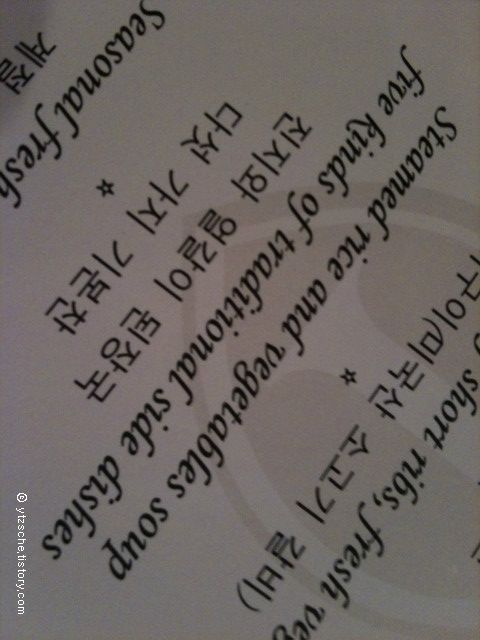 short ribs, fresh veg
구이(미국산 소고기 갈비)
☆
Steamed rice and vegetables soup
five kinds of traditional side dishes
진지와 얼갈이 된장국
다섯 가지 기본찬
☆
Seasonal fresh
계절
© ytzsche.tistory.com